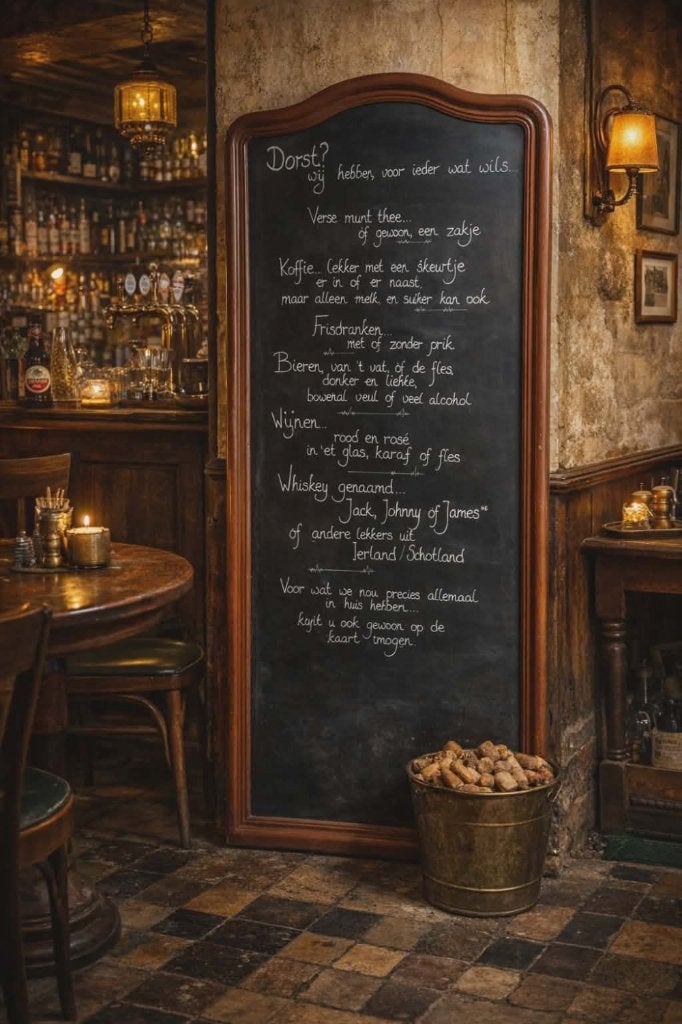 Dorst?
wij hebben, voor ieder wat wils...
Verse munt thee...
óf gewoon, een zakje
Koffie... lekker met een skeurtje
er in of er naast,
maar alleen melk en suiker kan ook
Frisdranken...
met of zonder prik.
Bieren, van 't vat, óf de fles,
donker en liehte,
veul of veel alcohol
Wijnen...
rood en rosé
in 'et glas, karaf of fles
Whiskey genaamd...
Jack, Johnny of James
of andere lekkers uit
Ierland/Schotland
Voor wat we nou precies allemaal
in huis hebben...
kyit u ook gewoon op de
kaart